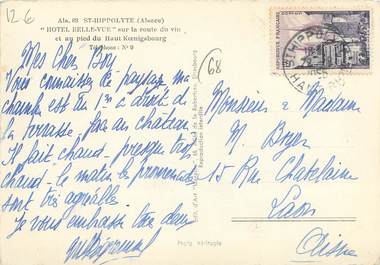 12 6
Als. 83 ST-HIPPOLYTE (Alsace)
"HOTEL BELLE-VUE" sur la route du vin
et au pied du Haut Kœnigsbourg
Téléphone : N° 9
Mes chers Boy
Vous connaissez le paysage ma
chambre est au 1er à droite d
la terrasse face au château
Il fait chaud, presque trop
chaud - le matin les promenades
sont très agréables.
Je vous embrasse tous deux
68
ST-HIPPOLYTE
Monsieur & Madame
M. Boyer
15 Rue Chatelaine
Laon
Aisne
Reproduction interdite
Photo véritable